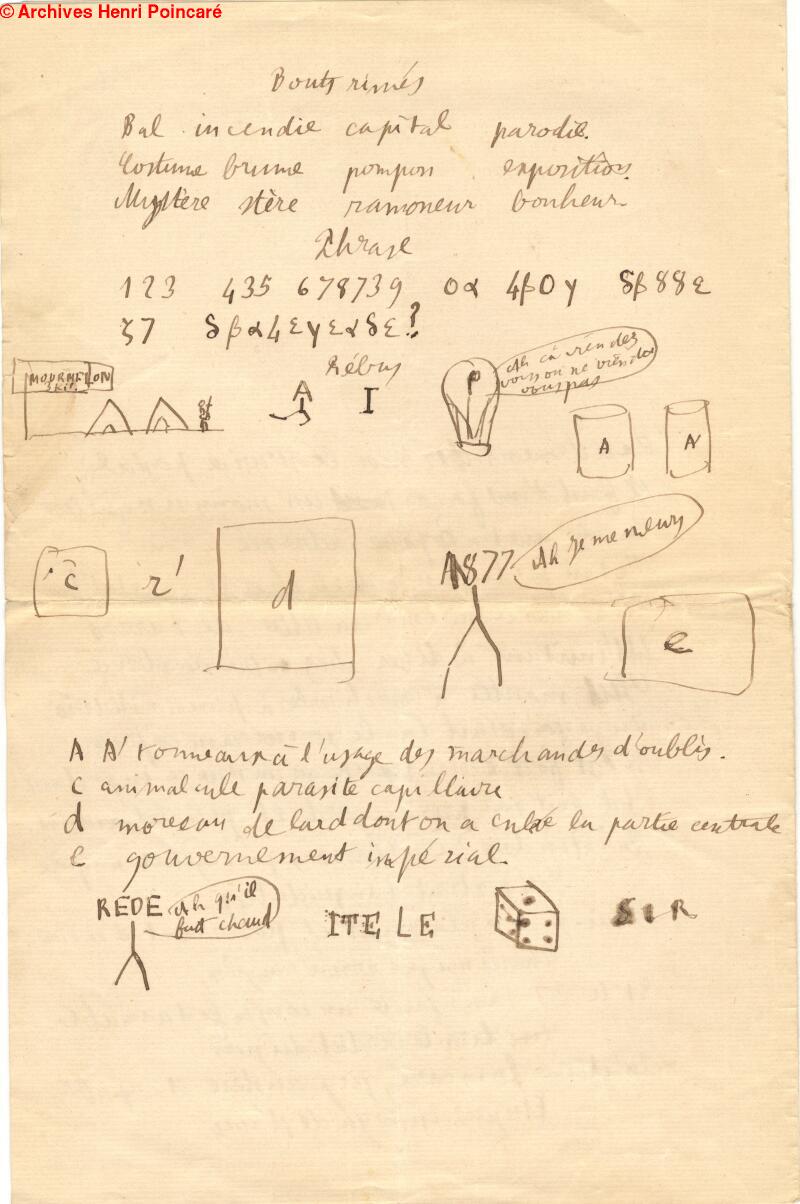 © Archives Henri Poincaré
Bouts rimés
Bal incendie capital parodie.
Costume brume pompon exposition.
Mystère stère ramoneur bonheur
Phrase
123 435 678739 0α 4β0γ δβ88ε
ζ7 δβα4εγεαδε?
Rébus
MOURMELON
A
I
P
Ah çà viendez
vous ou ne viendez
vous pas
A A'
c r' d
A877 Ah je me meurs
e
A A' tonneaux à l'usage des marchandes d'oublis.
c animalcule parasite capillaire
d morceau de lard dont on a enlevé la partie centrale
e gouvernement impérial.
REDE Ah qu'il
fait chaud
ITE LE
SIR